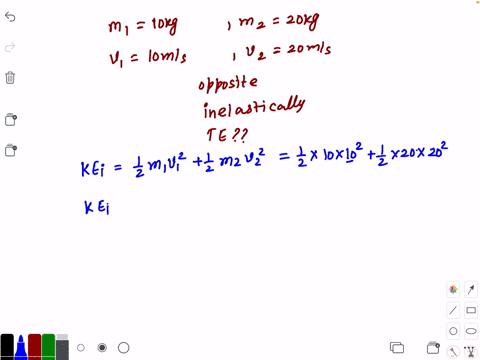 m₁ = 10kg , m₂ = 20kg
v₁ = 10m/s , v₂ = 20m/s
opposite
inelastically
TE??
KEi = 1/2 m₁v₁² + 1/2 m₂v₂² = 1/2 × 10×10² + 1/2 × 20×20²
KEi